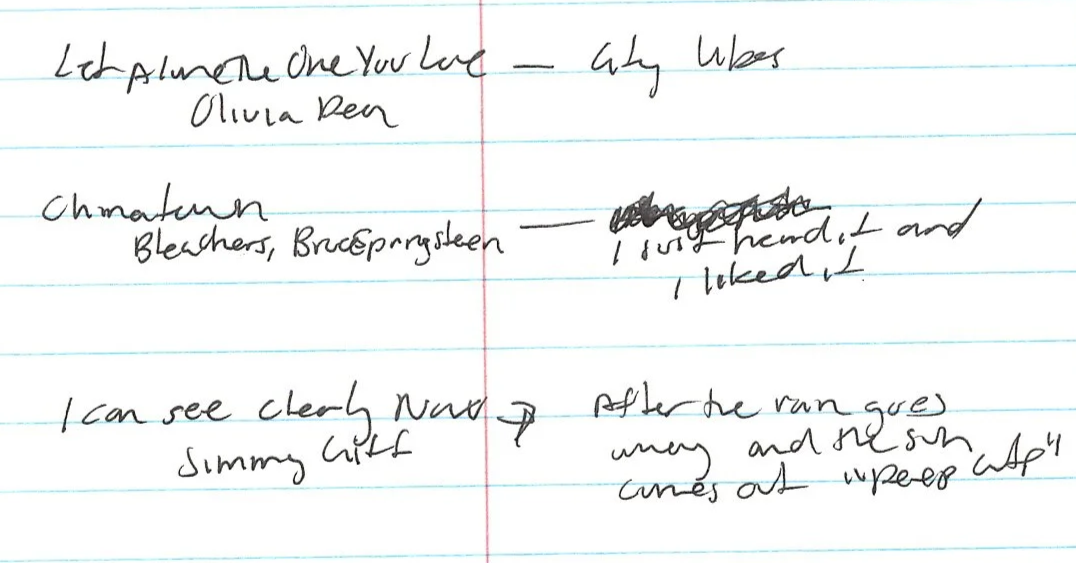 Let Alone The One You Love — City Vibes
Olivia Dean
Chinatown —
Bleachers, Bruce Springsteen
I just heard it and
I liked it
I can see clearly Now → After the rain goes
Jimmy Cliff
away and the sun
comes out "peep